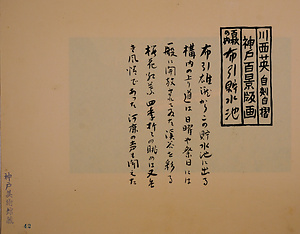 川西英 自刻自摺
神戸百景版画
布引貯水池
布引雄滝からこの貯水池に出る
構内の上り道は日曜や祭日には
一般に開放されてゐた渓谷を彩る
桜花 紅葉 四季折々の眺めは又
き風情であった 河鹿の声も聞えた
42